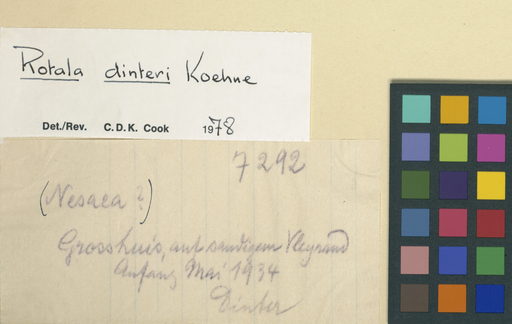 Rotala dinteri Koehne
Det./Rev. C.D.K. Cook 1978
7292
(Nesaea ?)
Grosshuis, auf sandigem Vleyrand
Anfang Mai 1934
Dinter